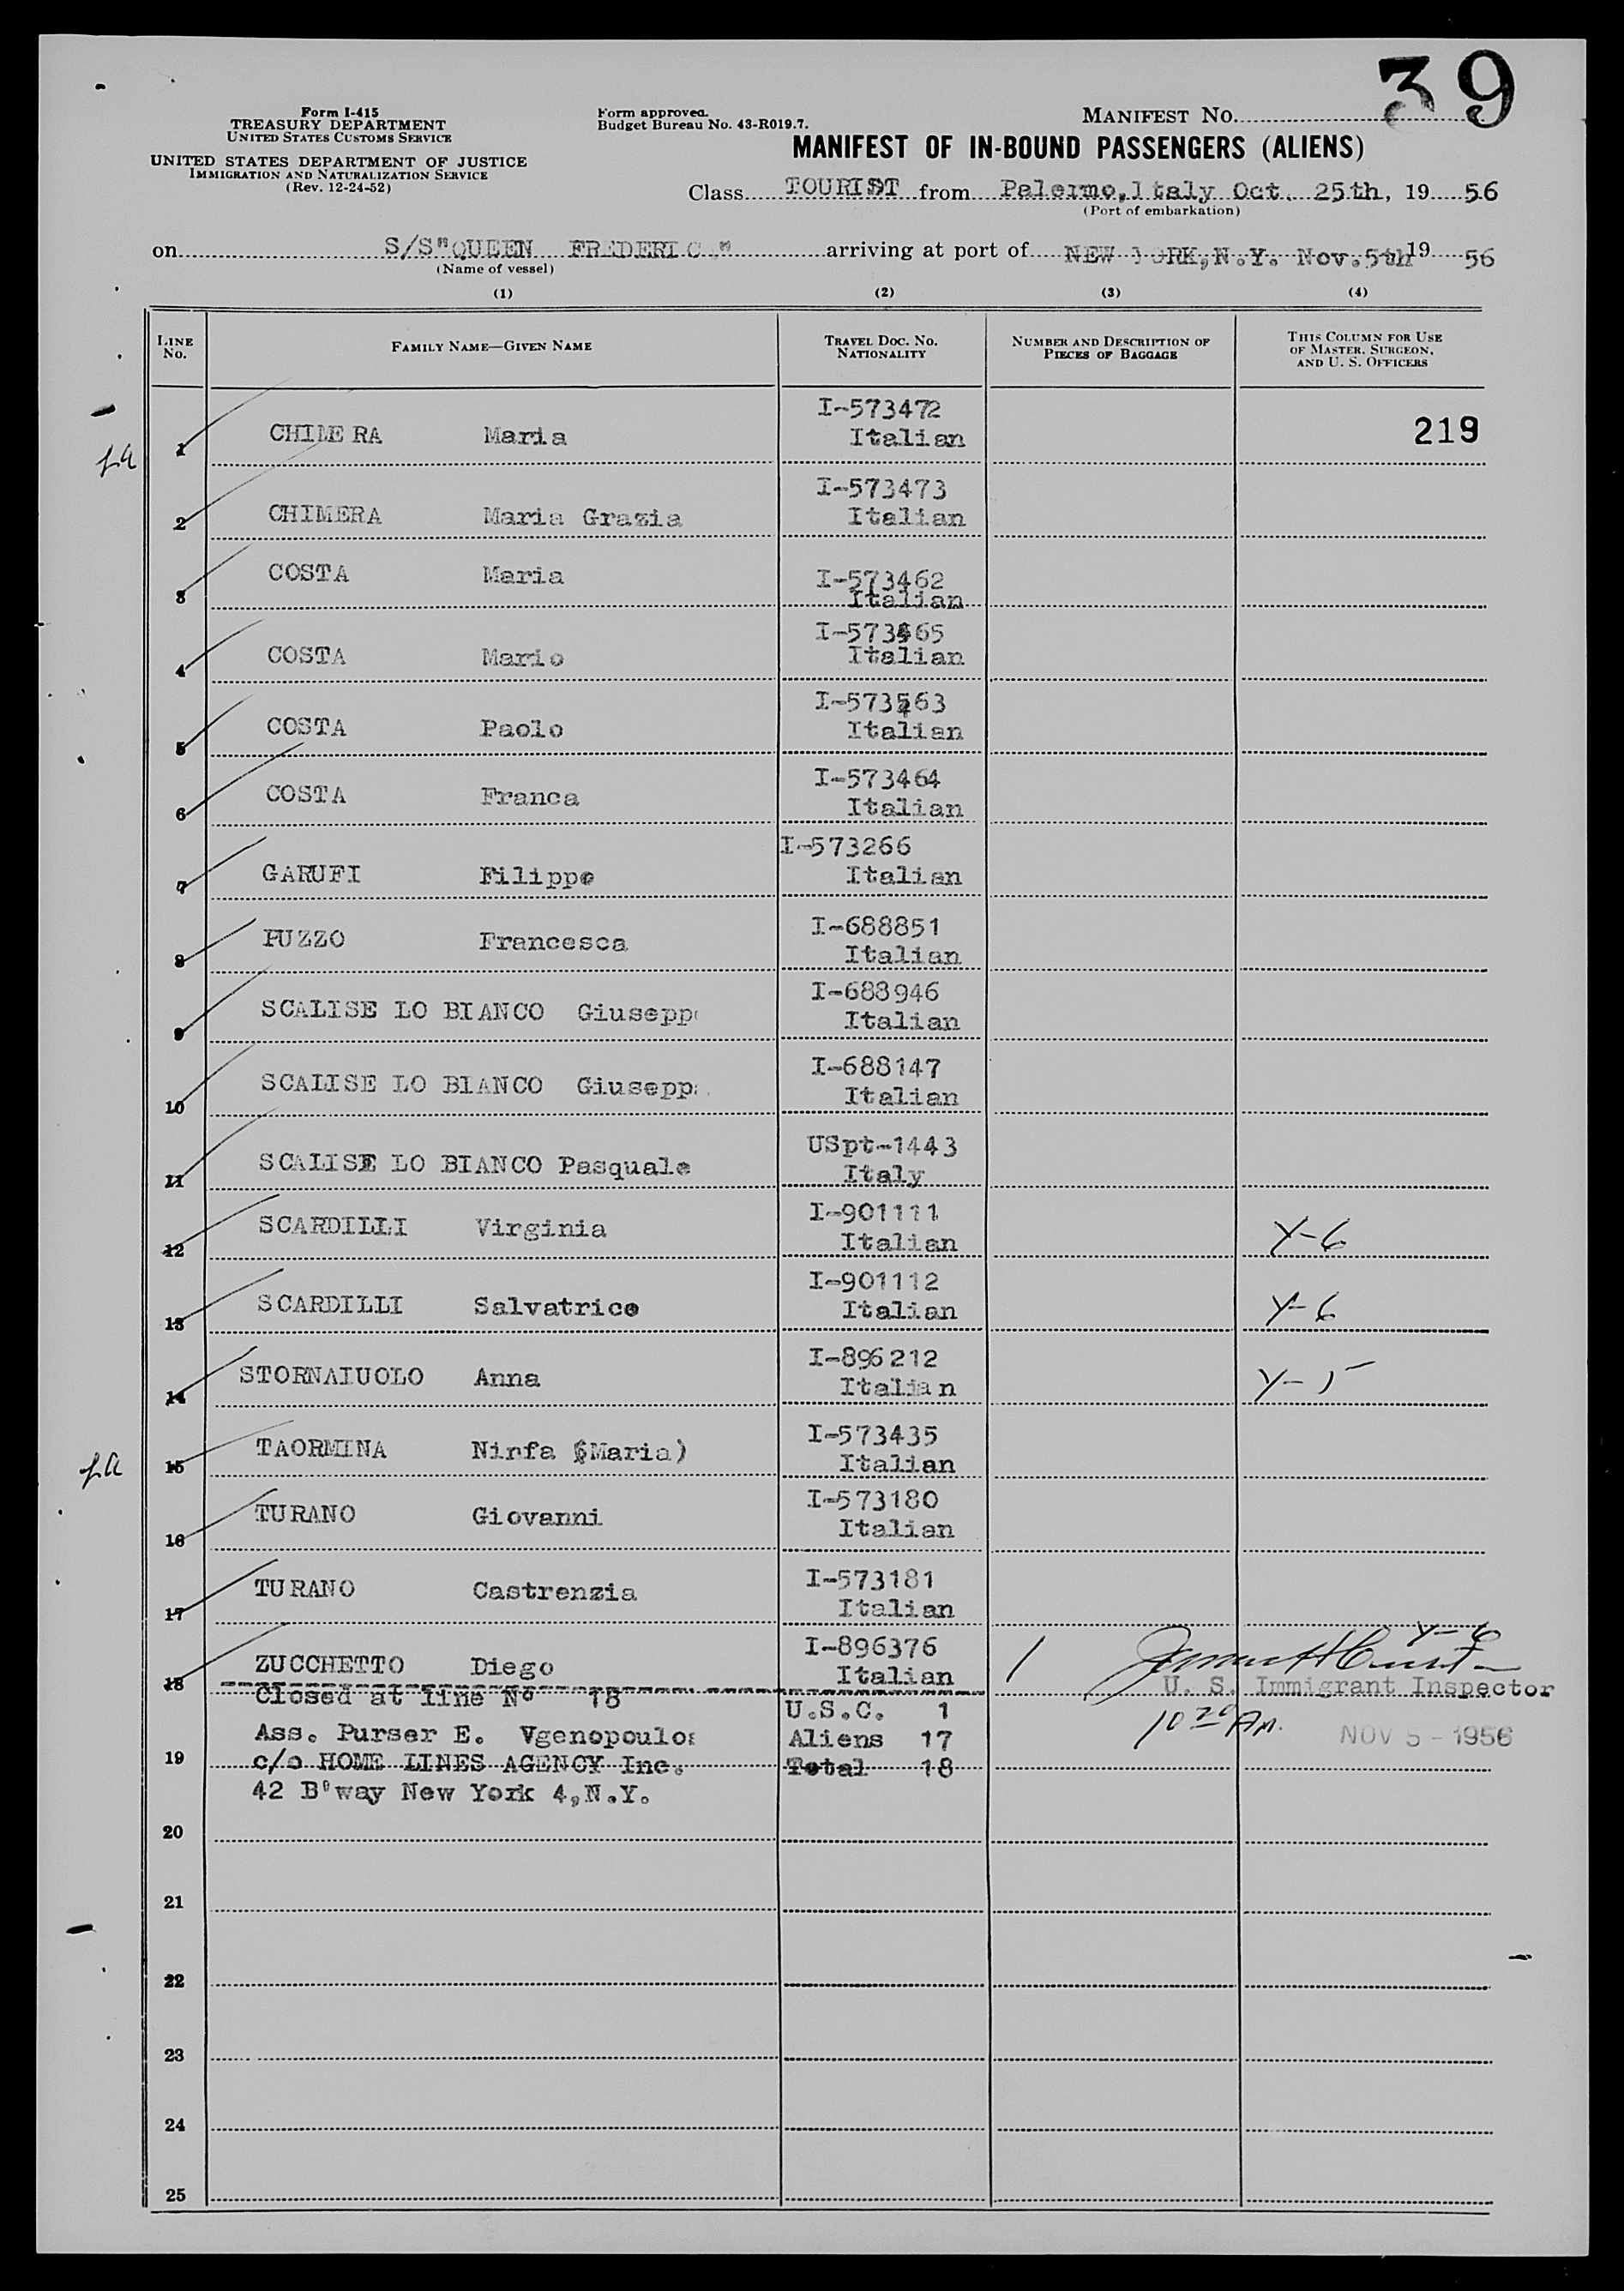 39
Form I-415
TREASURY DEPARTMENT
UNITED STATES CUSTOMS SERVICE
UNITED STATES DEPARTMENT OF JUSTICE
IMMIGRATION AND NATURALIZATION SERVICE
(Rev. 12-24-52)
Form approved.
Budget Bureau No. 43-R019.7.
MANIFEST No.
MANIFEST OF IN-BOUND PASSENGERS (ALIENS)
Class TOURIST from Palermo, Italy Oct. 25th, 19 56
(Port of embarkation)
on S/S "QUEEN FREDERIC " arriving at port of NEW YORK, N.Y. Nov. 5th 19 56
(Name of vessel)
(1) (2) (3) (4)
LINE No. FAMILY NAME—GIVEN NAME TRAVEL DOC. No. NATIONALITY NUMBER AND DESCRIPTION OF PIECES OF BAGGAGE THIS COLUMN FOR USE OF MASTER, SURGEON, AND U. S. OFFICERS
I-573472
1 CHIMERA Maria Italian 219
I-573473
2 CHIMERA Maria Grazia Italian
3 COSTA Maria I-573462
Italian
I-573465
4 COSTA Mario Italian
I-573463
5 COSTA Paolo Italian
I-573464
6 COSTA Franca Italian
I-573266
7 GARUFI Filippo Italian
I-688851
8 PUZZO Francesca Italian
I-688946
9 SCALISE LO BIANCO Giusepp Italian
I-688147
10 SCALISE LO BIANCO Giusepp Italian
USpt-1443
11 SCALISE LO BIANCO Pasquale Italy
I-901111
12 SCARDILLI Virginia Italian Y-6
I-901112
13 SCARDILLI Salvatrice Italian Y-6
I-896212
14 STORNAIUOLO Anna Italian Y-5
I-573435
15 TAORMINA Ninfa (Maria) Italian
I-573180
16 TURANO Giovanni Italian
I-573181
17 TURANO Castrenzia Italian
I-896376 Y-6
18 ZUCCHETTO Diego Italian 1
Closed at line No 18 U. S. Immigrant Inspector
U.S.C. 1
Ass. Purser E. Vgenopoulos Aliens 17 10 20 AM. NOV 5 - 1956
19 c/o HOME LINES AGENCY Inc. Total 18
42 B'way New York 4, N.Y.
20
21
22
23
24
25